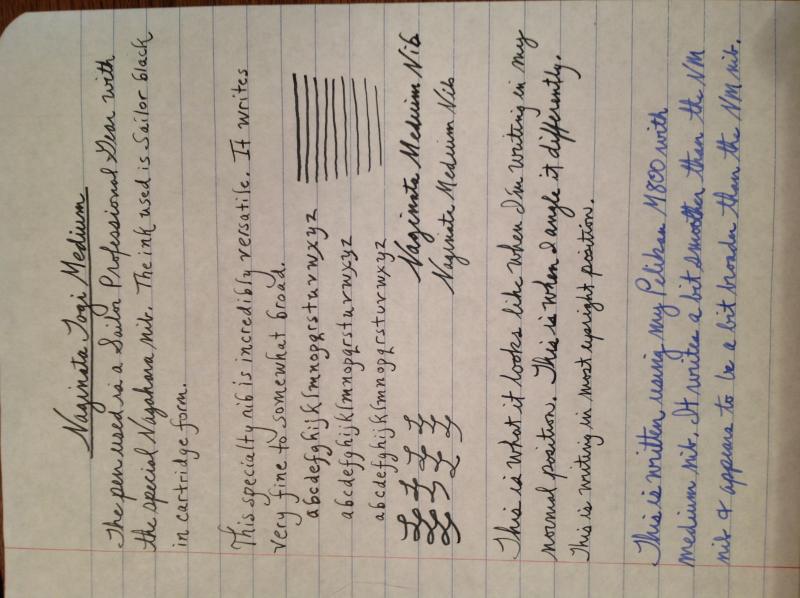 Naginata Togi Medium
The pen used is a Sailor Professional Gear with
the special Nagahara nib. The ink used is Sailor black
in cartridge form.
This specialty nib is incredibly versatile. It writes
very fine to somewhat broad.
abcdefghijklmnopqrstuvwxyz
abcdefghijklmnopqrstuvwxyz
abcdefghijklmnopqrstuvwxyz
Naginata Medium Nib
Naginata Medium Nib
This is what it looks like when I'm writing in my
normal position. This is when I angle it differently.
This is writing in most upright position.
This is written using my Pelikan M800 with
medium nib. It writes a bit smoother than the NM
nib & appears to be a bit broader than the NM nib.